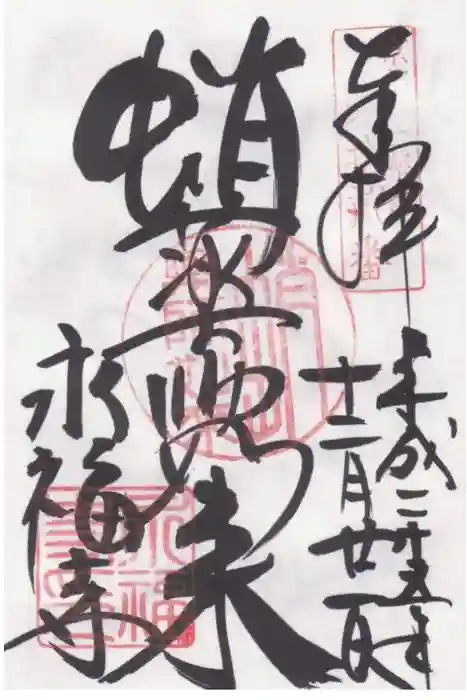 奉拝
平成二十五年
十二月廿一日
蛸薬師如来
永福寺
永福寺印